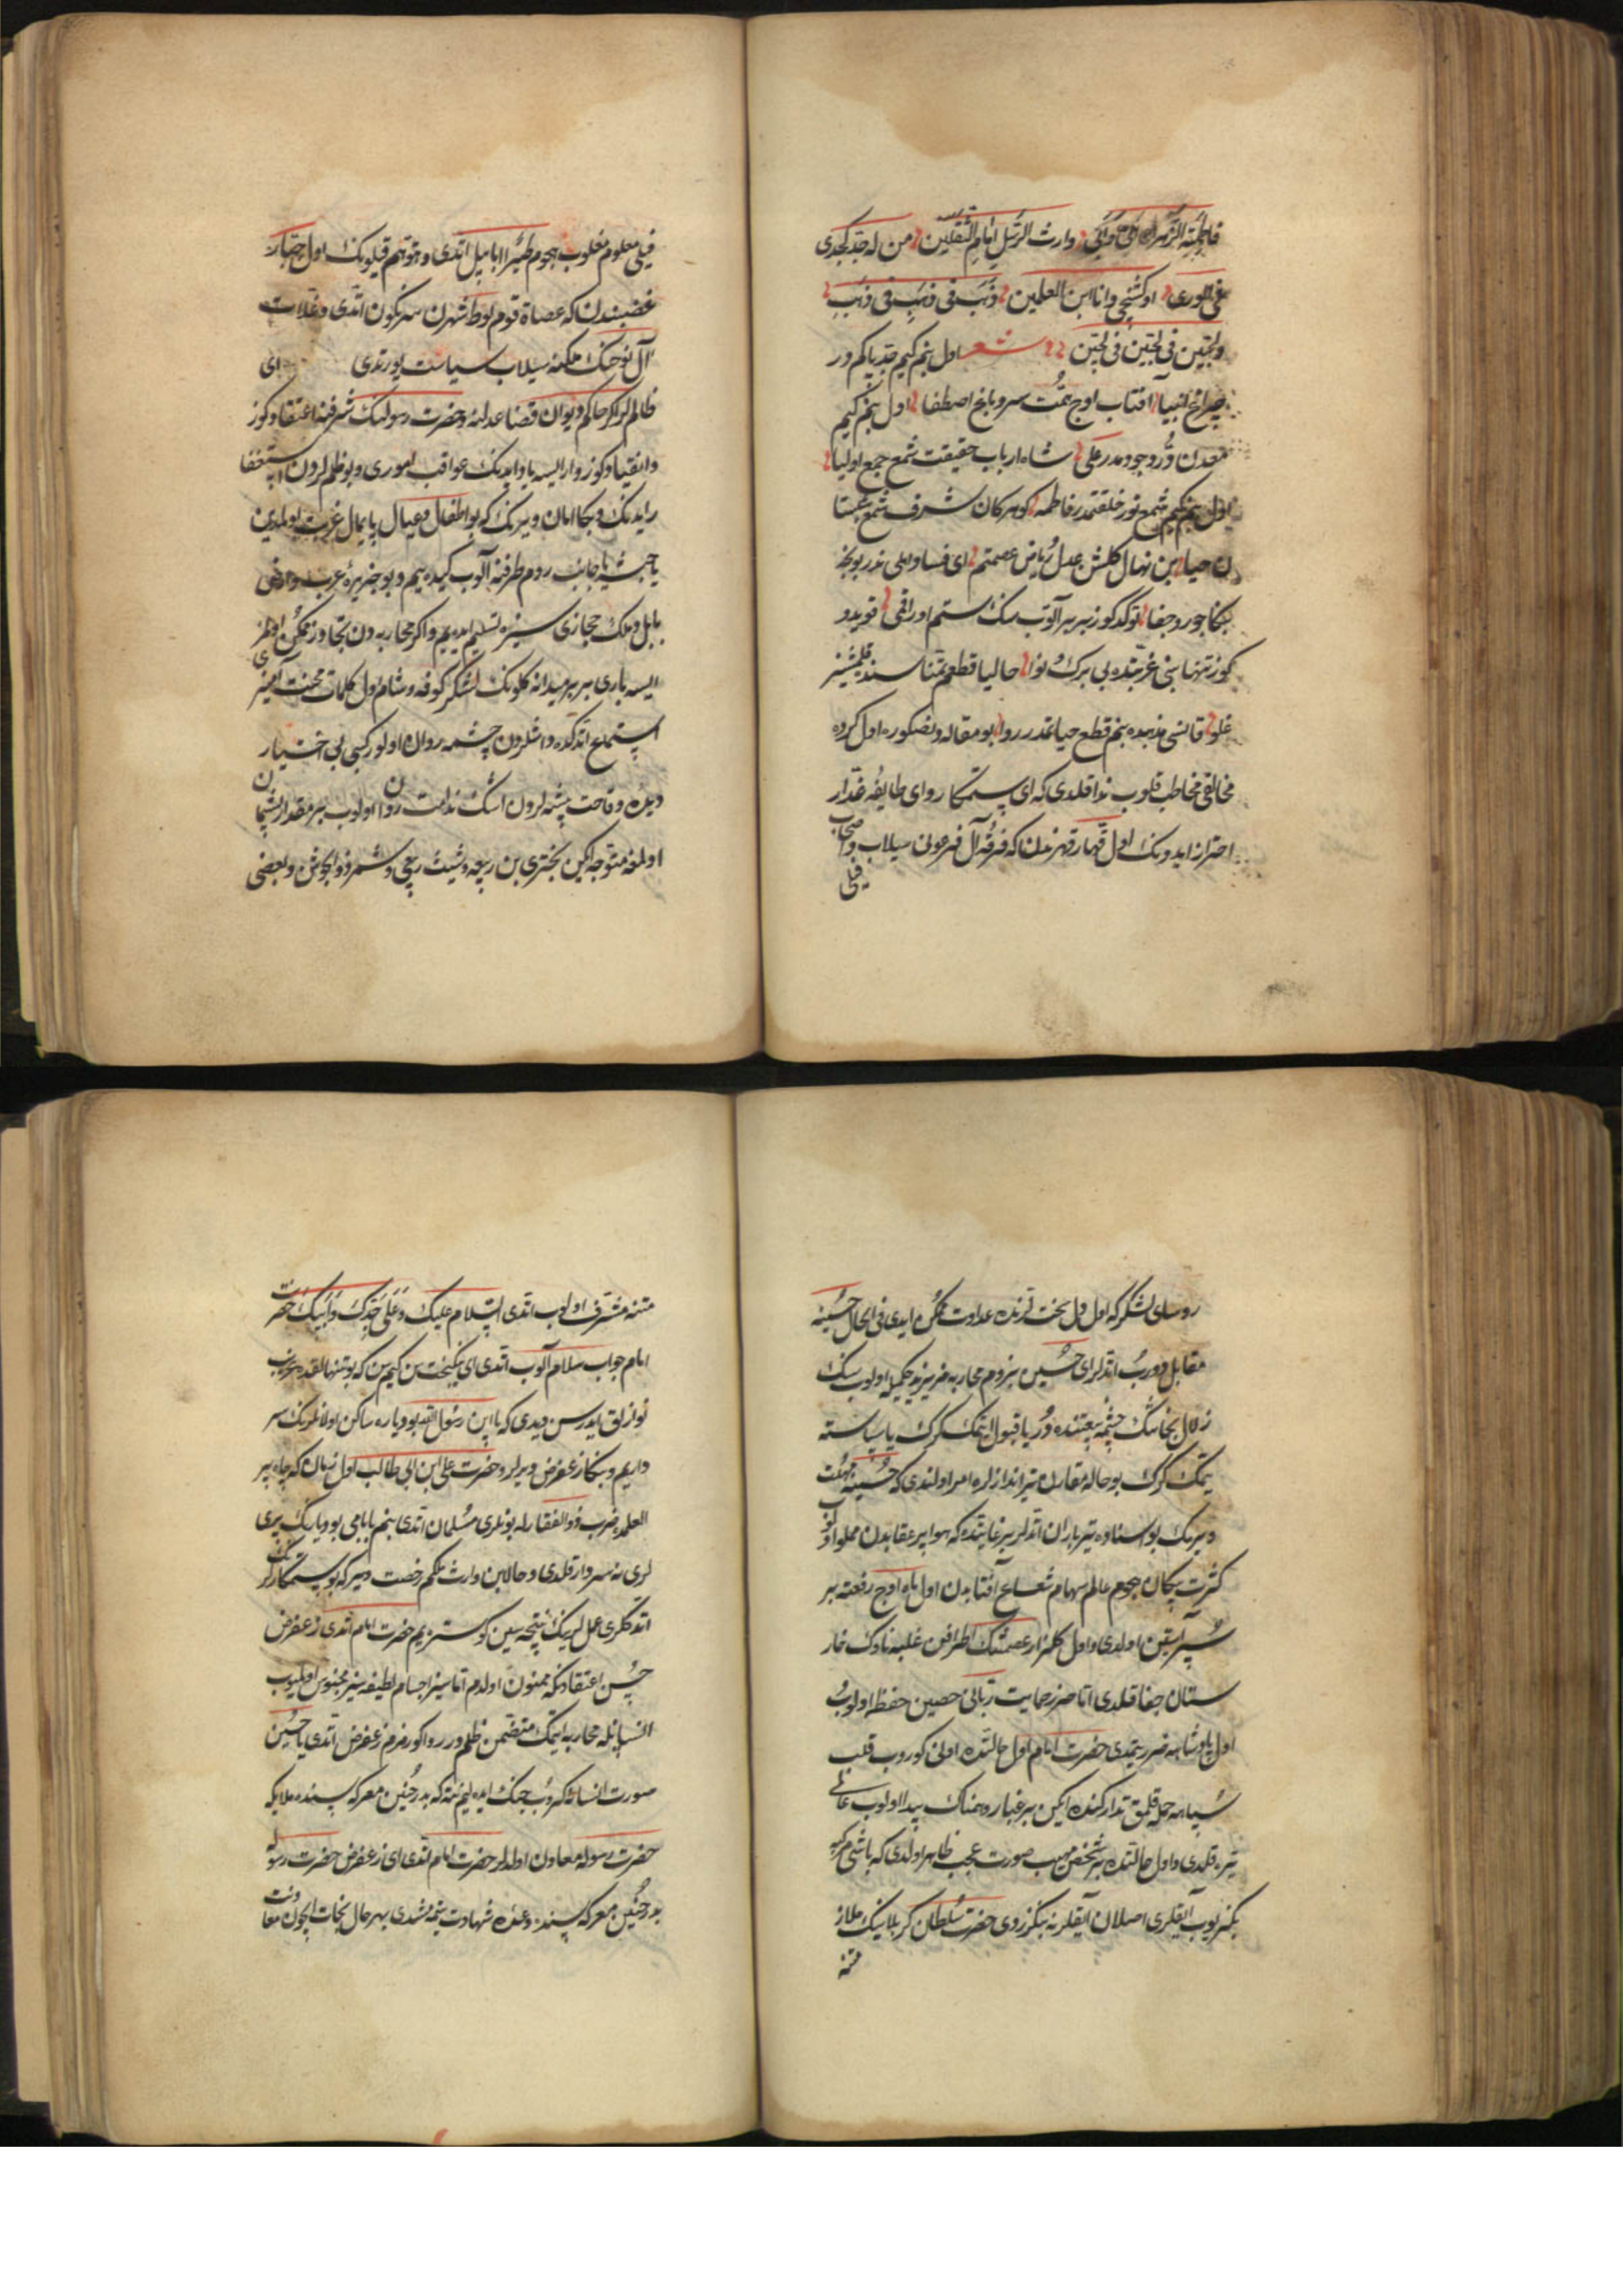 فاطمة الزهراء امی وابی وارث الرسل امام الثقلین من له جد کجدی
فی الوری او کشیخی وانا ابن العلمین ذهب فی ذهب فی ذهب
ولجین فی لجین فی لجین شعر اول بنم کیم جد پاکم در
چراغ انبیا افتاب اوج همت سرو باغ اصطفا اول بنم کیم
معدن در وجودمدر علی شاه ارباب حقیقت شمع جمع اولیا
اول بنم کیم شمع نور خلقتمدر فاطمه کوهر کان شرف شمع شبستا
ن حیا بن نهال کلشن عدل ریاض عصمتم ای فساد اهلی ندر بونجه
بنکا جور و جفا توکدکوز بر بر آلوب سنک ستم اوراقمی قویدو
کوز تنها بنی غربتده بی برک و نوا حالیا قطعم تمناسنده قلمشسز
غلو قانسی مذهبده بنم قطع حیاتمدر روا بو مقاله دنصکوره اول کروه
مخالفی مخاطب قلوب ندا قلدی که ای ستمکار و ای طایفه غدار
احتراز ایدونک اول قهار قهرندن که فرقه آل فرعونی سیلاب واصحاب
فیلی
فیلی معلوم مغلوب هجوم طیرا ابابیل اتدی و توهم قیلونک اول جبار
غضبندن که عصاة قوم لوط شهرن سرنکون اتدی و غلات
آل نوحنک ملکنه سیلاب سیاست یورتدی ای
ظالملر اکر حاکم دیوان قضا عدلنه و حضرت رسولنک شرفنه اعتقادکوز
وانقیادکوز وار ایسه یاد ایدنک عواقب اموری و بو ظلملردن استغفا
ر ایدنک و بکا امان ویرنک که بو اطفال و عیال پایمال غربت اولمدین
یا حبشه یا جانب روم طرفنه آلوب کیده ییم و بو جزیره عرب واراضی
بابل و ملک حجازی سیزه تسلیم ایدییم واکر محاربه دن تجاوز ممکن اولمز
ایسه باری بر بر میدانه کلونک لشکر کوفه و شام اول کلمات محنت آمیزی
استماع اتدکده داشلردن چشمه روان اولور کبی بی اختیار
دیده وقاحت پیشه لرون اشک ندامت روان اولوب بر مقدار پشیمان
اولمغه متوجه ایکن بختری بن ربیعه و شیث ربعی و شمر ذوالجوش و بعضی
روسای لشکر که اول دل سخت لرنده عداوت ممکن ایدی فی الحال حسینه
مقابل دوروب اتدلر ای حسین بزوم محاربه مز یزید حکمیله اولوب سنک
زلال نجاتنک چشمه بیعتنده در یا قبول ایتمک کرک یا سیاسته
یتمک کرک بو حاله مقارن تیراندازلره امر اولندی که حسینه مهلت
ویرمنک بو اسناده تیرباران اتدلر بر غایتده که هوا پر عقابدن مملو اولوب
کثرت پیکان هجوم عالم سهام شعاع آفتابدن اول ماه اوج رفعته بر
سپر آیین اولدی و اول کلزار عصمتنک اطرافن غلبه ناوک خار
ستان جفا قلدی اما حرز حمایت ربانی حصین حفظ اولوب
اول پادشاهه ضرر یتمدی حضرت امام اول حالتده اونی کوروب قلب
سپاهه حمله قلمق تدارکنده ایکن بر غبار وهمناک پیدا اولوب عالمی
تیره قلدی و اول حالتده بر شخص مهیب صورت عجب ظاهر اولدی که باشی مرکبه
بکزریوب آیقلری اصلان آیقلرنه بکزردی حضرت سلطان کربلانیک ملاز
متنه
متنه مشرف اولوب اتدی السلام علیک و علی جدک وابیک حضرت
امام جواب سلام آلوب اتدی ای نیکبخت سن کیمسن که بو تنهالقده غریب
نوازلق ایدرسن دیدی که یا ابن رسول الله بو دیارده ساکن اولانلرنک سر
داریم و بنکا زعفرض دیرلر و حضرت علی ابن ابی طالب اول زمان که چاه بیر
العلمده ضرب ذوالفقارله بونلری مسلمان اتدی بنم بابامی بو دیارنک پری
لرینه سردار قلدی و حالا بن وارث ملکم رخصت ویر که بو ستمکارلرنک
اتدکلری عمللرینک نتیجه سین کوستریم حضرت امام اتدی زعفرض
حسن اعتقادنکه ممنون اولدم اما سیز اجسام لطیفه سیز محسوس اولمیوب
انسانله محاربه ایتمک متضمن ظلم در روا کورمزم زعفرض اتدی یا حسین
صورت انسانه کروب جنک ایده لیم نته که بدر حنین معرکه سنده ملایکه
حضرت رسوله معاون اولدلر حضرت امام اتدی ای زعفرض حضرت رسوله
بدر حنین معرکه سنده وعده شهادت یتمه مشدی بهر حال نجات ایچون معاونت